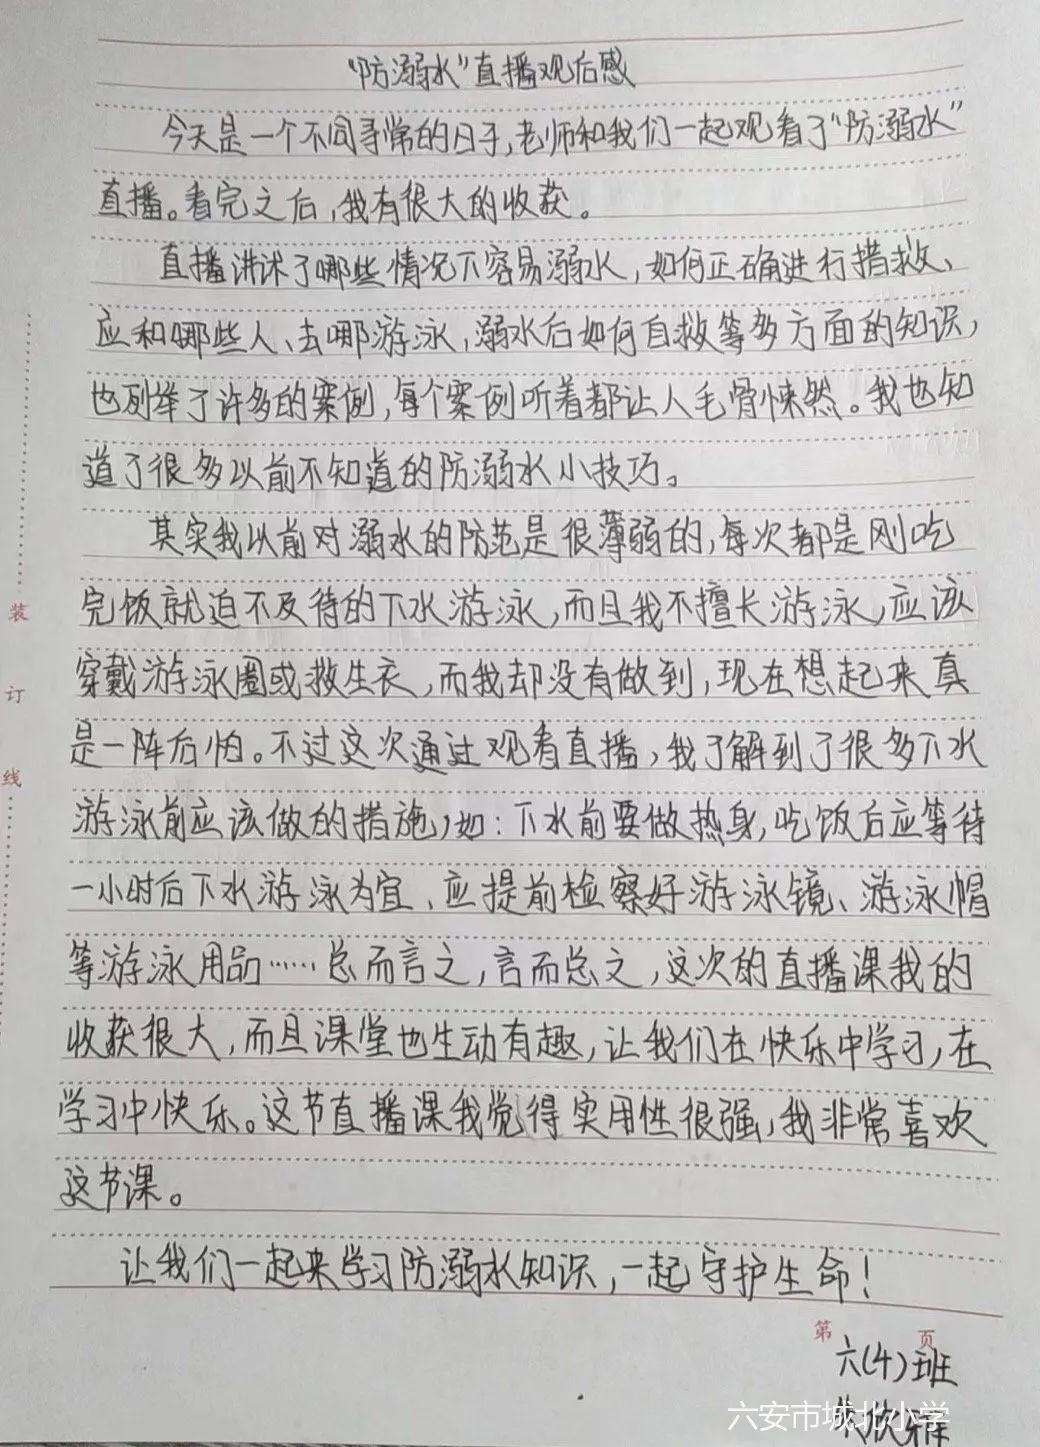 “防溺水”直播观后感
今天是一个不同寻常的日子,老师和我们一起观看了“防溺水”
直播。看完之后,我有很大的收获。
直播讲述了哪些情况下容易溺水,如何正确进行措救、
应和哪些人、去哪游泳,溺水后如何自救等多方面的知识,
也列举了许多的案例,每个案例听着都让人毛骨悚然。我也知
道了很多以前不知道的防溺水小技巧。
其实我以前对溺水的防范是很薄弱的,每次都是刚吃
完饭就迫不及待的下水游泳,而且我不擅长游泳,应该
穿戴游泳圈或救生衣,而我却没有做到,现在想起来真
是一阵后怕。不过这次通过观看直播,我了解到了很多下水
游泳前应该做的措施,如:下水前要做热身,吃饭后应等待
一小时后下水游泳为宜、应提前检察好游泳镜、游泳帽
等游泳用品……总而言之,言而总之,这次的直播课我的
收获很大,而且课堂也生动有趣,让我们在快乐中学习,在
学习中快乐。这节直播课我觉得实用性很强,我非常喜欢
这节课。
让我们一起来学习防溺水知识,一起守护生命!
装
订
线
第 页
六(4)班
欣雅
六安市城北小学